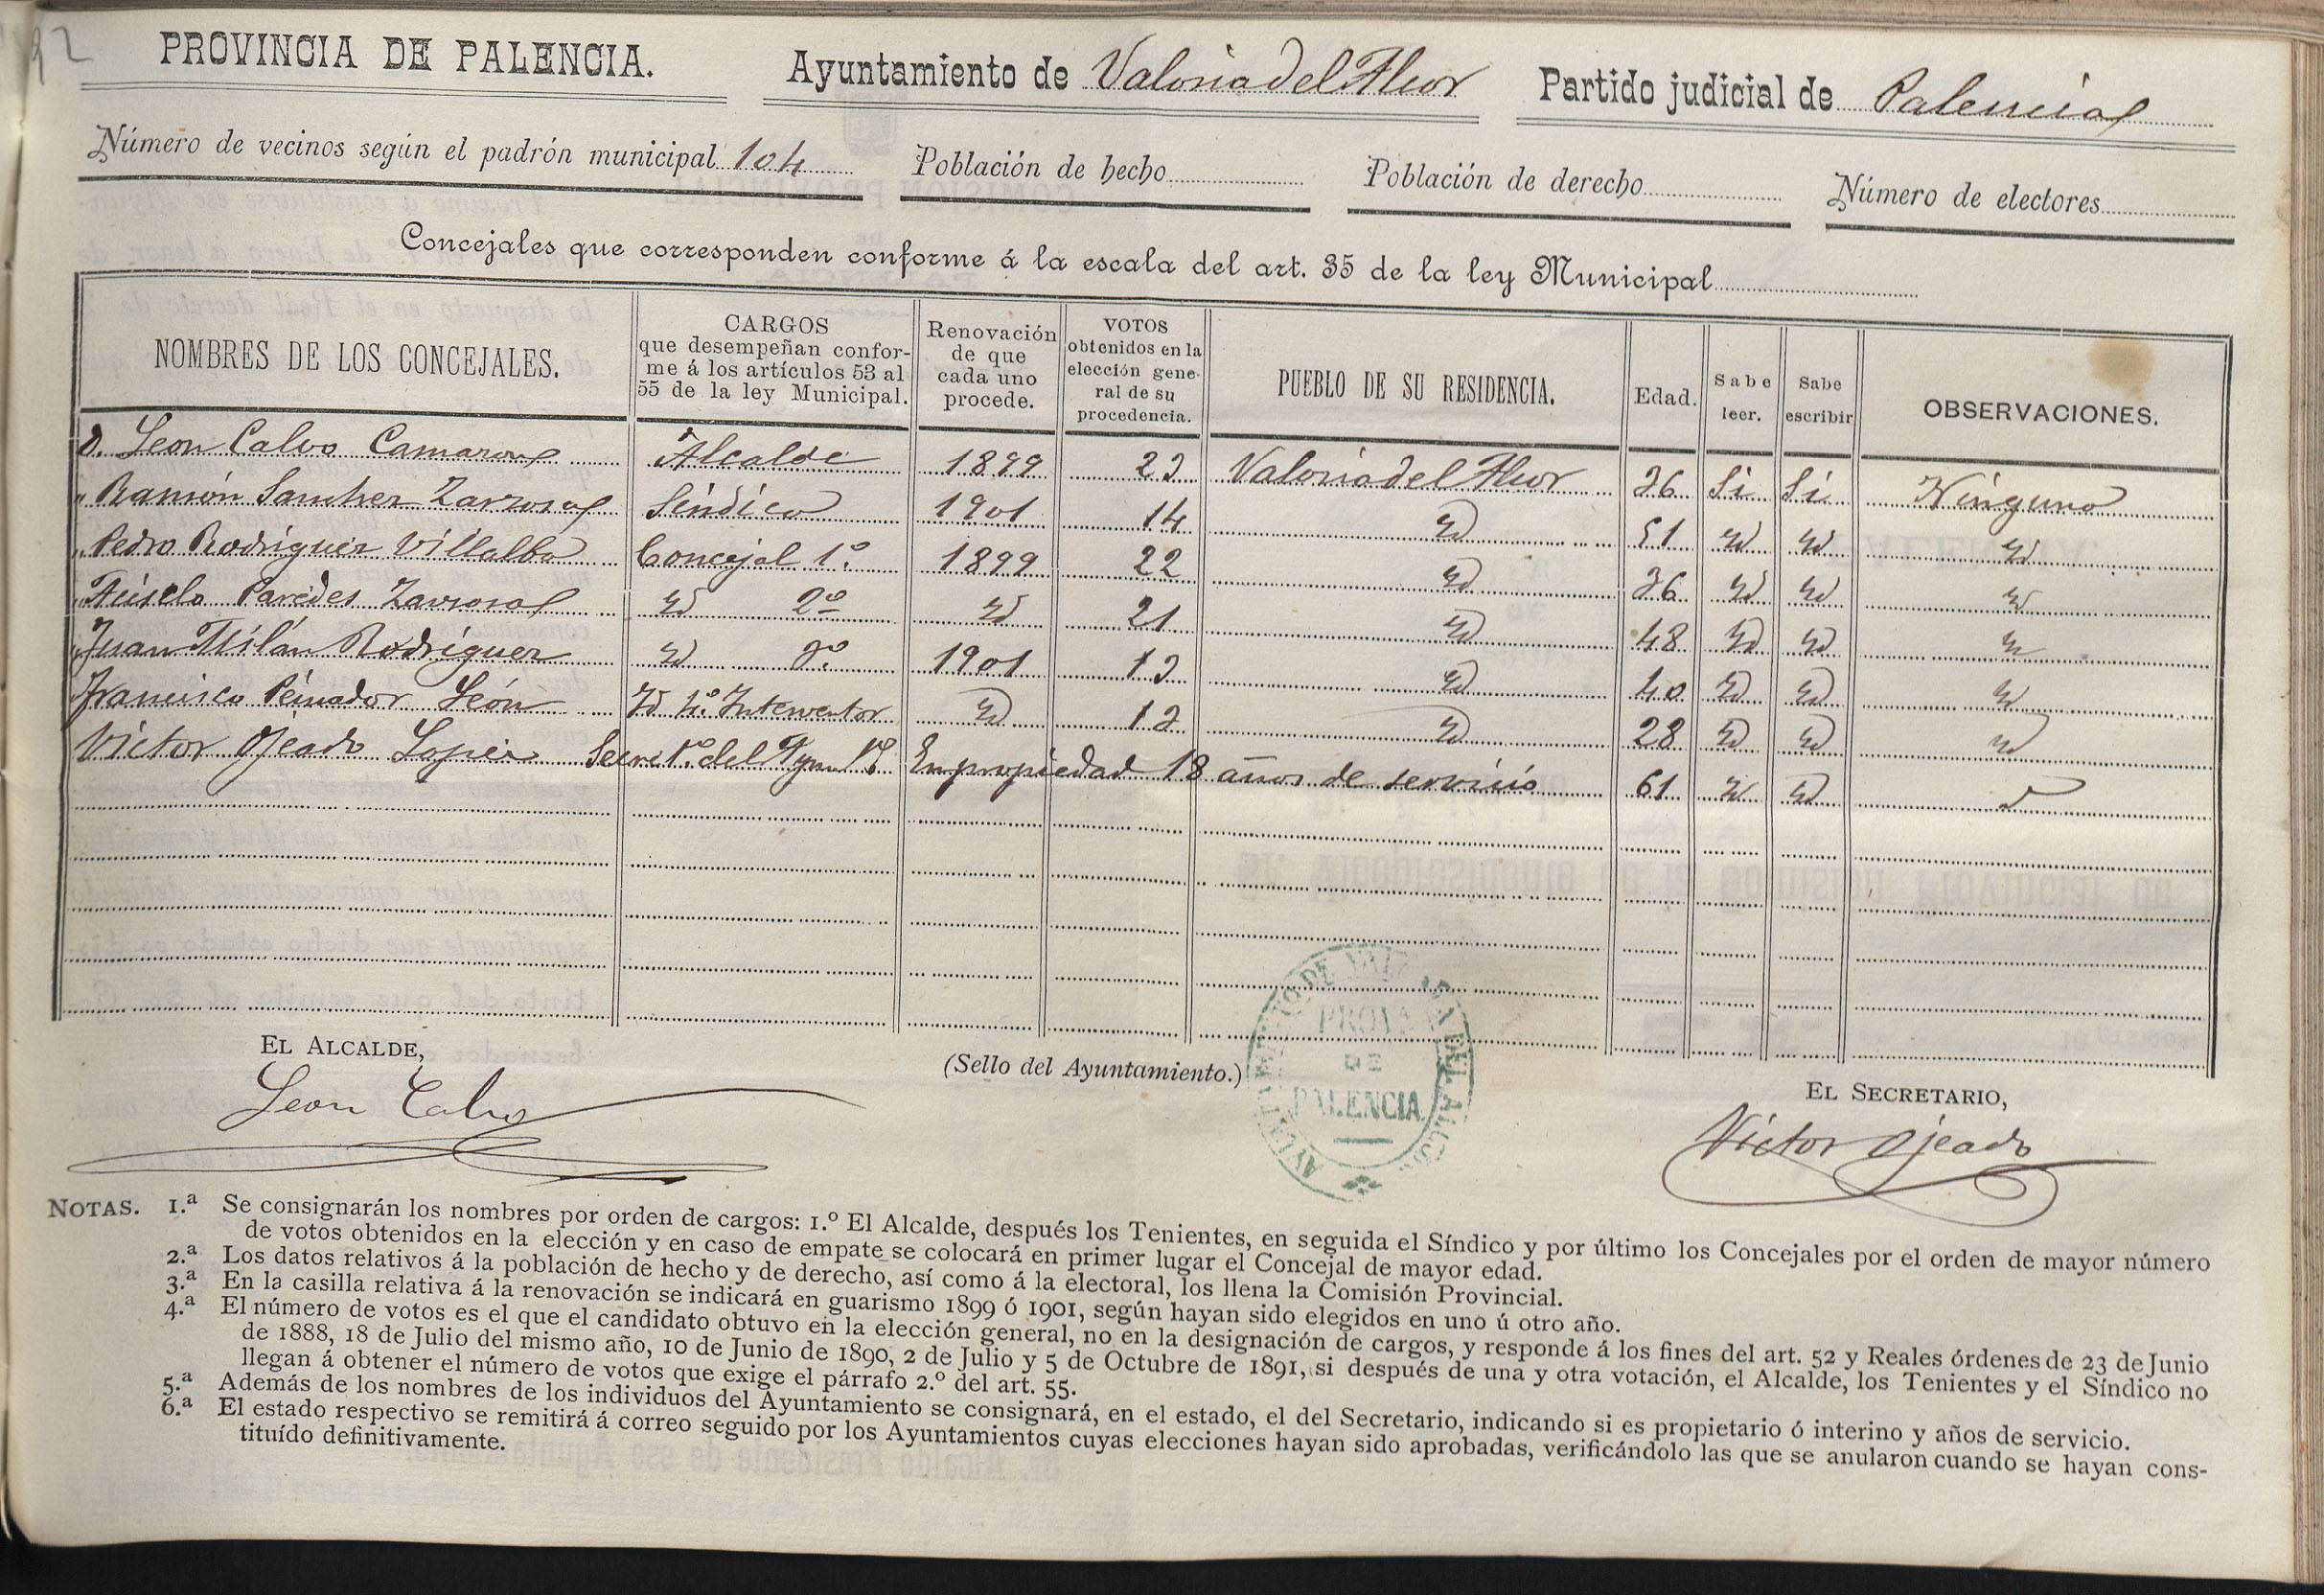 PROVINCIA DE PALENCIA. Ayuntamiento de Valoria del Alcor Partido judicial de Palencia
Número de vecinos según el padrón municipal 104 Población de hecho Población de derecho Número de electores
Concejales que corresponden conforme á la escala del art. 35 de la ley Municipal
NOMBRES DE LOS CONCEJALES.
CARGOS
que desempeñan confor-
me á los artículos 53 al
55 de la ley Municipal.
Renovación
de que
cada uno
procede.
VOTOS
obtenidos en la
elección gene-
ral de su
procedencia.
PUEBLO DE SU RESIDENCIA.
Edad.
Sabe
leer.
Sabe
escribir
OBSERVACIONES.
D. Leon Calvo Alcalde 1899 23 Valoria del Alcor 36 Si Si Ninguna
" Ramón Sanchez Síndico 1901 14 Id 51 Id Id Id
" Pedro Rodriguez Villalba Concejal 1.º 1899 22 Id 36 Id Id Id
" Paredes Id 2º Id 21 Id 48 Id Id Id
" Juan Milán Rodriguez Id 3º 1901 13 Id 40 Id Id Id
Francisco Peinador León Id 4º Interventor Id 13 Id 28 Id Id Id
Victor Ojeado Lopez Secretº del Aymtº En propiedad 18 años de servicio 61 Id Id
EL ALCALDE,
Leon Calvo
(Sello del Ayuntamiento.)
AYUNTAMIENTO DE VALORIA DEL ALCOR
PROVA
DE
PALENCIA
EL SECRETARIO,
Victor Ojeado
NOTAS. 1.ª Se consignarán los nombres por orden de cargos: 1.º El Alcalde, después los Tenientes, en seguida el Síndico y por último los Concejales por el orden de mayor número
de votos obtenidos en la elección y en caso de empate se colocará en primer lugar el Concejal de mayor edad.
2.ª Los datos relativos á la población de hecho y de derecho, así como á la electoral, los llena la Comisión Provincial.
3.ª En la casilla relativa á la renovación se indicará en guarismo 1899 ó 1901, según hayan sido elegidos en uno ú otro año.
4.ª El número de votos es el que el candidato obtuvo en la elección general, no en la designación de cargos, y responde á los fines del art. 52 y Reales órdenes de 23 de Junio
de 1888, 18 de Julio del mismo año, 10 de Junio de 1890, 2 de Julio y 5 de Octubre de 1891, si después de una y otra votación, el Alcalde, los Tenientes y el Síndico no
llegan á obtener el número de votos que exige el párrafo 2.º del art. 55.
5.ª Además de los nombres de los individuos del Ayuntamiento se consignará, en el estado, el del Secretario, indicando si es propietario ó interino y años de servicio.
6.ª El estado respectivo se remitirá á correo seguido por los Ayuntamientos cuyas elecciones hayan sido aprobadas, verificándolo las que se anularon cuando se hayan cons-
tituído definitivamente.